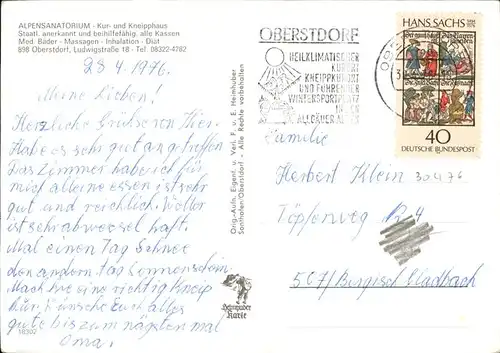 ALPENSANATORIUM - Kur- und Kneipphaus
Staatl. anerkannt und beihilfefähig. alle Kassen
Med. Bäder - Massagen - Inhalation - Diät
898 Oberstdorf, Ludwigstraße 18 - Tel. 08322-4282
28 4. 1976.
Meine Lieben!
Herzliche Grüße von Hier.
Habe es sehr gut angetroffen
Das Zimmer habe ich für
mich alleine essen ist sehr
gut und reichlich. Wetter
ist sehr abwechsel haft.
Mal einen Tag Schnee
den andern tag Sonnenschein.
Mach hir eine richtig Kneip
kur. Wünsche Euch alles
gute bis zum nächsten mal
Oma!
18302
Orig.-Aufn. Eigent. u. Verl. F. u. E. Heimhuber
Sonthofen/Oberstdorf - Alle Rechte vorbehalten
Heimhuber
Karte
OBERSTDORF
HEILKLIMATISCHER
KURORT
KNEIPPKURORT
UND FÜHRENDER
WINTERSPORTPLATZ
IN DEN
ALLGÄUER ALPEN
HANS SACHS
40
DEUTSCHE BUNDESPOST
Familie
Herbert Klein 30476
Töpferweg R 4
507/Bergisch Gladbach